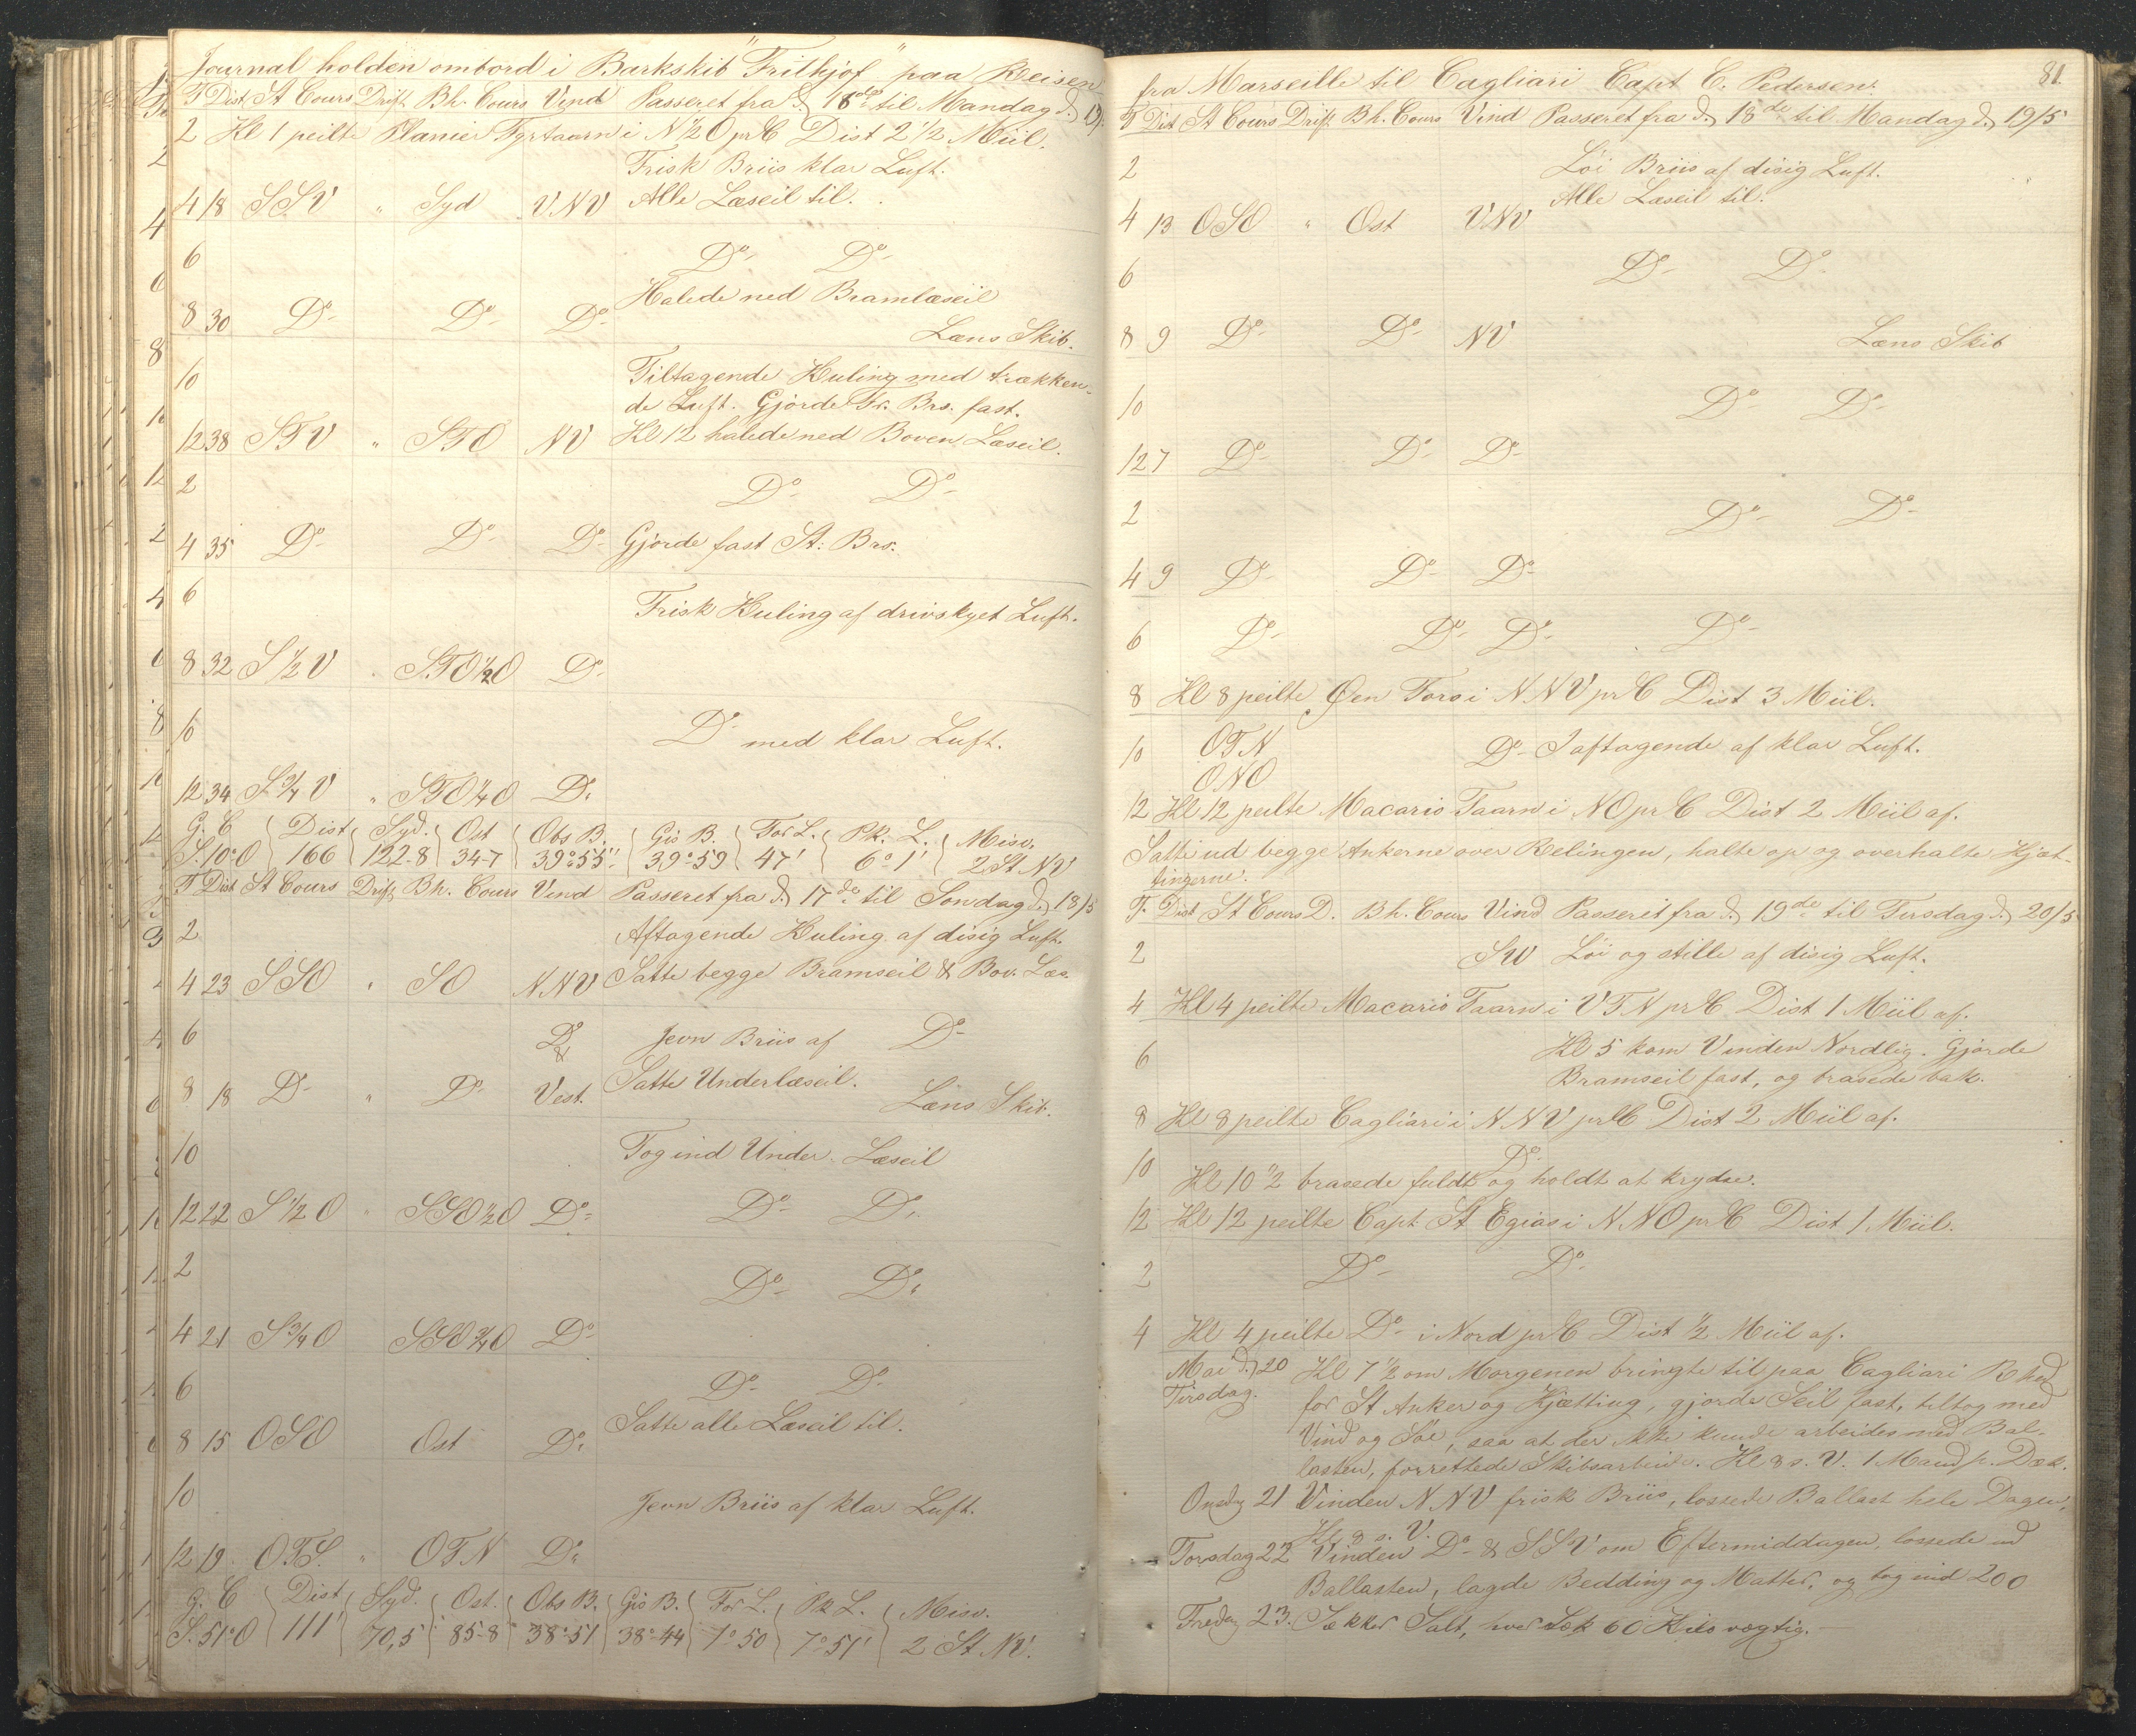 Journal holden ombord i Barkskib "Frithjof" paa Reisen
T Dist St Cours Drift Bh. Cours Vind Passeret fra d. 16de til Mandag d. 19/5
2 Kl 1 peilte Planier Fyrtaarn i N½O pr C Dist 2½ Miil.
Frisk Briis klar Luft.
4 18 SSV " Syd VNV Alle Læseil til.
6 Do- Do-
Halede ned Bramlæseil
8 30 Do- Do- Do-
Læns Skib.
10 Tiltagende Kuling med trækken-
de Luft. Gjorde Fr. Brs. fast.
12 38 STV " STO NV Kl 12 halede ned Boven Læseil.
2 Do- Do-
4 35 Do- Do- Do- Gjorde fast St: Brs.
6
Frisk Kuling af drivskyet Luft.
8 32 S½V STO½O Do-
10 Do- med klar Luft.
12 34 S¾V " STO¼O Do
G. C Dist Syd. Ost Obs B. Gis B. For L. Pk. L. Misv.
S.10°O 166 122-8 34-7 39°55" 39°59 47' 6°1' 2 St NV
T Dist St Cours Drift Bh. Cours Vind Passeret fra d. 17de til Søndag d. 18/5
2 Aftagende Kuling af disig Luft.
4 23 SSO " SO NNV Satte begge Bramseil & Bov. Læs.
6 Do & Jevn Briis af Do-
8 18 Do- " Do- Vest. Satte Underlæseil.
Læns Skib.
10 Tog ind Under Læseil
12 22 S½O " SSO½O Do- Do- Do-
2 Do- Do
4 21 S¾O SSO¾O Do-
6 Do- Do-
8 15 OSO Ost Do Satte alle Læseil til.
10
Jevn Briis af klar Luft.
12 19 OTS. " OTN Do
G. C Dist Syd. Ost. Obs B. Gis B. For L. Pk L. Misv.
S.51°O 111' 70,5 85-8 38°51 38°44 1°50 7°51' 2 St NV.
81.
fra Marseille til Cagliari Capt C. Pedersen.
T Dist St Cours Drift Bh. Cours Vind Passeret fra d. 18de til Mandag d. 19/5
2 Løi Briis af disig Luft.
Alle Læseil til.
4 13 OSO " Ost VNV
6 Do- Do-
8 9 Do- Do- NV Læns Skib
10 Do- Do-
12 7 Do- Do- Do-
2 Do- Do-
4 9 Do- Do- Do-
6 Do- Do- Do- Do-
8 Kl 8 peilte Øen Toro i NNV pr C Dist 3 Miil.
10 OTN Do- I aftagende af klar Luft.
ONO
12 Kl 12 peilte Macario Taarn i NO pr C Dist 2 Miil af.
Satte ud begge Ankerne over Relingen, halte op og overhalte Kjæt-
tingerne.
T. Dist St Cours D. Bh. Cours Vind Passeret fra d. 19de til Tirsdag d. 20/5
2 SW Løi og stille af disig Luft.
4 Kl 4 peilte Macario Taarn i VTN pr C Dist 1 Miil af.
6 Kl 5 kom Vinden Nordlig. Gjorde
Bramseil fast, og brasede bak.
8 Kl 8 peilte Cagliari i NNV pr C Dist 2 Miil af.
10 Do-
Kl 10½ brasede fuldt og holdt at krydse.
12 Kl 12 peilte Capt St Egias i NNO pr C Dist 1 Miil.
2 Do- Do-
4 Kl 4 peilte Do- i Nord pr C Dist ½ Miil af.
Mai d. 20 Kl 7½ om Morgenen bringte til paa Cagliari Rhed
Tirsdag. for St Anker og Kjætting, gjorde Seil fast, tiltog med
Vind og Søe, saa at der ikke kunde arbeides med Bal-
lasten, forrettede Skibsarbeide. Kl 8 s. V. 1 Mand p. Dæk.
Onsdag 21 Vinden NNV frisk Briis, lossede Ballast hele Dagen,
Kl 8 s. V.
Torsdag 22 Vinden Do- & SSV om Eftermiddagen, lossede ud
Ballasten, lagde Bedding og Matter, og tog ind 200
Fredag 23. Sækker Salt, hver Sæk 60 Kilo vægtig.